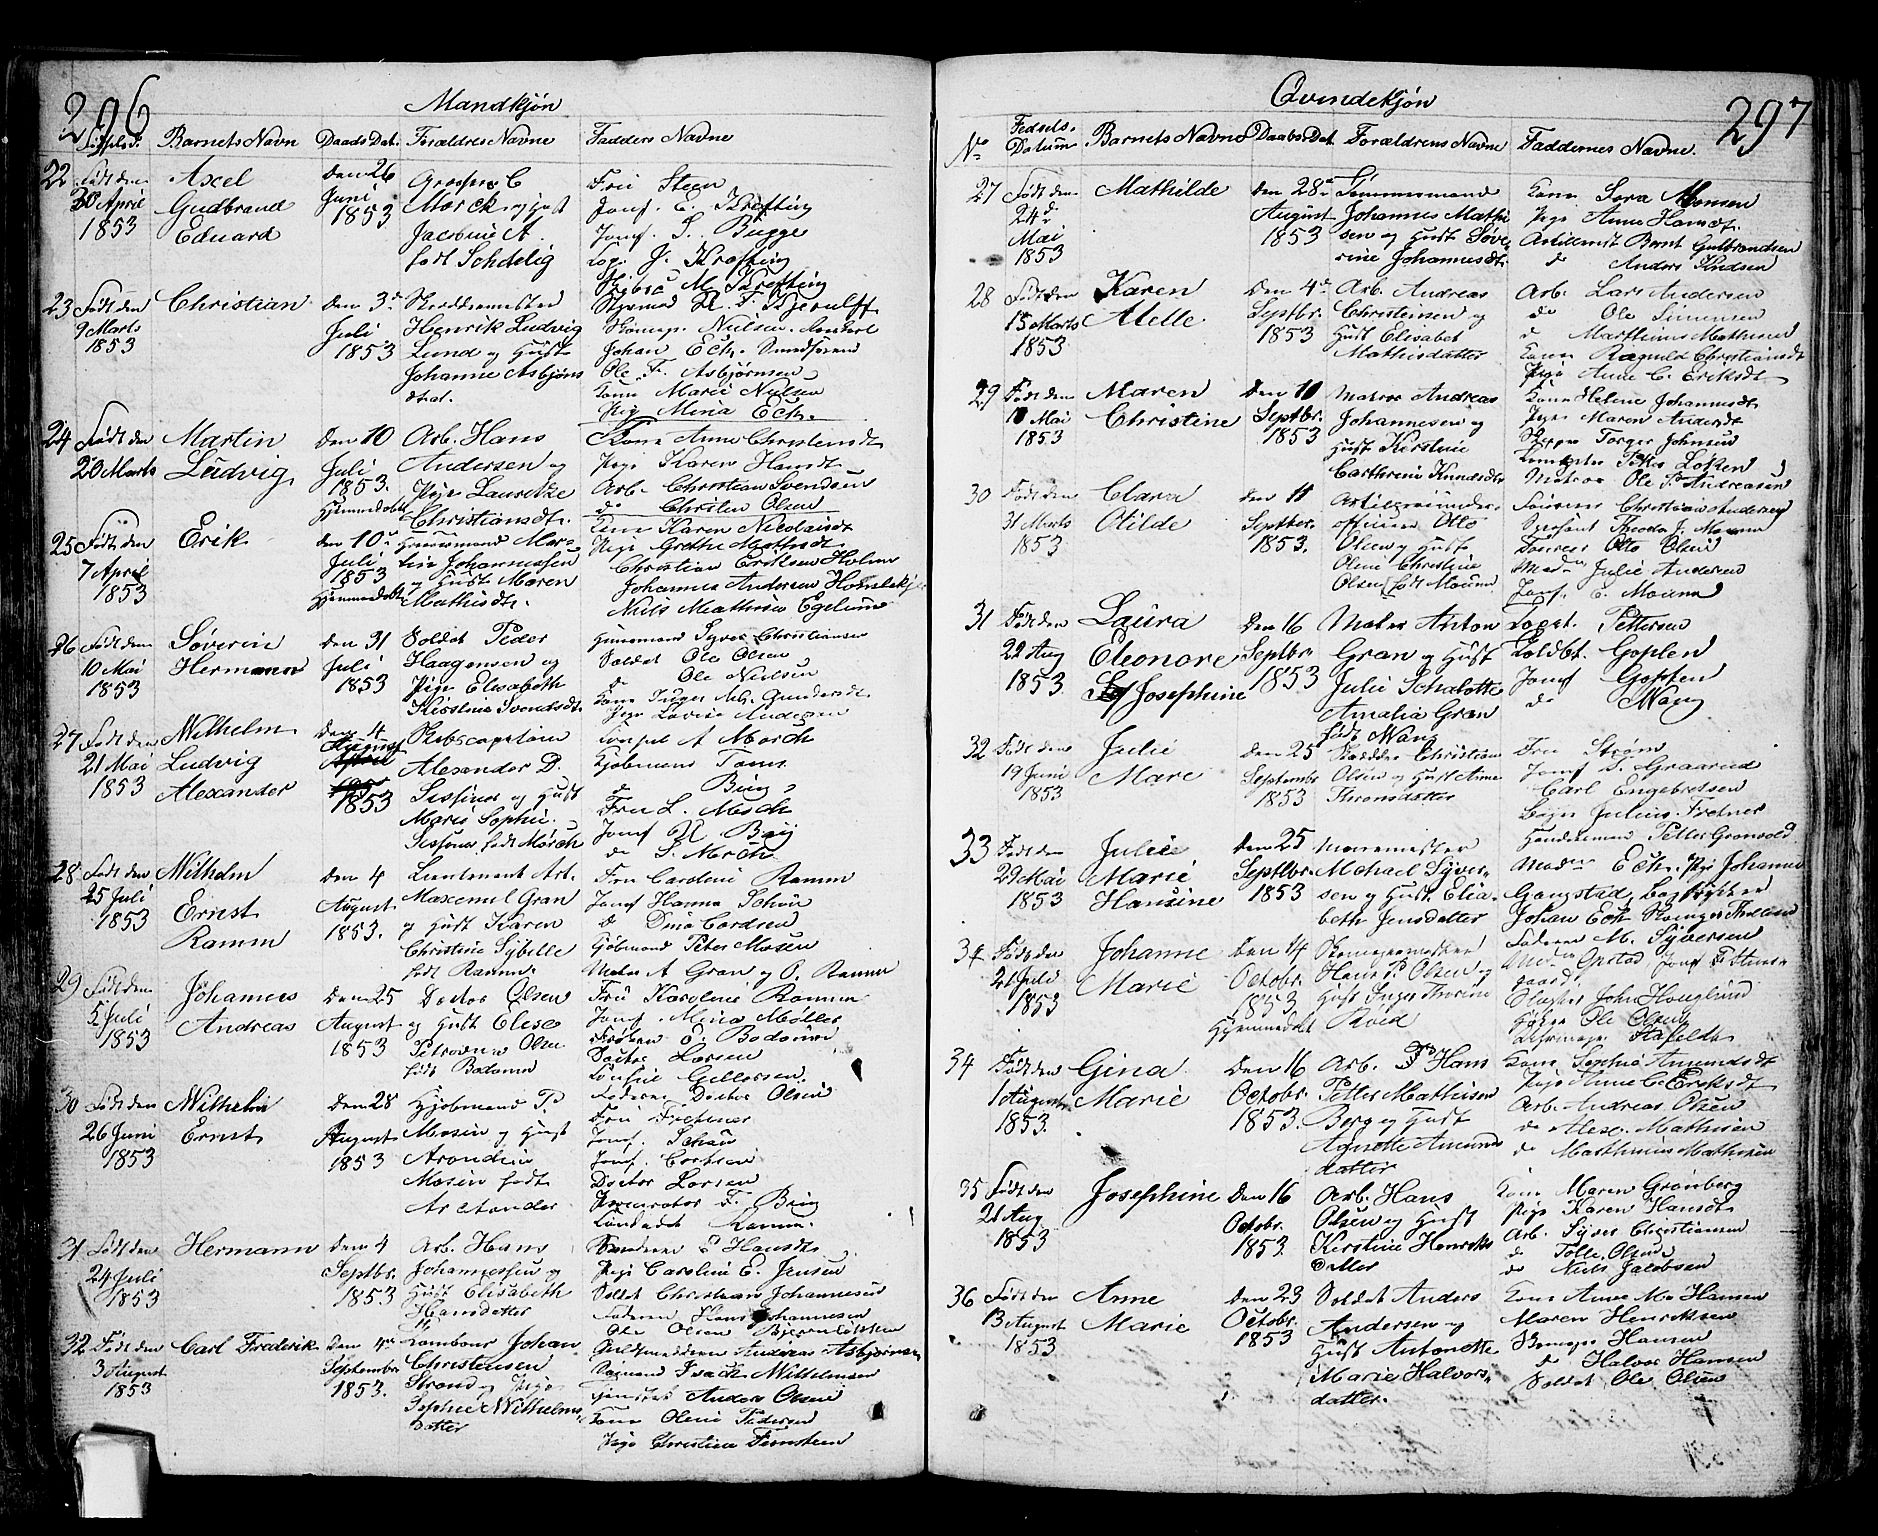 296
Mandkjøn
Barnets Navn Daabs Dat. Forældres Navne Fadders Navne
22 Født den 30 April 1853
Axel Gudbrand Eduard
Den 26 Juni 1853
Mørck og Hust
Jacobine A.
født
Fru Steen
Jomf. E. Krefting
Jomf. S. Bugge
J. Krefting
M. Krefting
23 Født den 9 Marts 1853
Christian
Den 3de Juli 1853
Henrik Ludvig
Lund og Hust
Johanne Asbjøns
dtat.
F. Kjerulff
Nielsen
Johan Eck.
Ole F. Asbjørnsen
Kone Marie Nielsen
Pige Mina Eck.
24 Født den 20 Marts
Martin Ludvig
Den 10 Juli 1853.
Hjemmedøbt
Arb. Hans
Andersen og
Pige Lauretze
Christiansdt.
Kone Anne Christensdt
Pige Karen Hansdt.
Arb. Christian Svendsen
do Christen Olsen
25 Født den 7 April 1853
Erik
Den 10de Juli 1853
Hjemmedøbt
Mar-
tin Johannessen
og Hust Maren
Mathisdt.
Kone Karen Nicolaisdt
Pige Grethe Mathisdt
Christian Eriksen Holm
Johannes Andersen
Niels Mathesen Egelund
26 Født den 10 Mai 1853
Søverin Hermann
Den 31 Juli 1853
Soldat Peder
Haagensen og
Pige Elisabeth
Kirstine Svendsdt.
Huusmand Syver Christiansen
Soldat Ole Olsen
do Ole Nielsen
Kone Inger Gundersdt
Pige Lovise Andersen
27 Født den 21 Mai 1853
Wilhelm Ludvig Alexander
Den 4 August 1853
Skibscapitain
Alexander D.
og Hust
Marie Sophie
født Mørch
A Mørch
Kjøbmand
do Bing
Fru L. Mørch
Jomf. Bing
do S. Mørch
28 Født den 25 Juli 1853
Wilhelm Ernst Ramm
Den 4 August 1853.
Lieutenant Art.
Maxemil Gran
og Hust Karen
Christine Sybelle
født Ramm.
Fru Caroline Ramm
Jomf Hanna Schou
do Dina Cordsen
Kjøbmand Peter Mosin
A Gran og O. Ramm
29 Født den 5 Juli 1853
Johannes Andreas
Den 25 August 1853
Doctor Olsen
og Hust Elise
Petrona Olsen
født Bodom
Fru Karoline Ramm
Jomf. Mina Møller
Frøken
Doctor Larsen
Faderen Doctor Olsen
30 Født den 26 Juni 1853
Wilhelm Ernst
Den 28 August 1853
Kjøbmand P.
Mosin og Hust
Mosin født
Fru
Jomf. Schou
Jomf. Cordsen
Doctor Larsen
Procurator F. Bing
Ramm.
31 Født den 24 Juli 1853
Hermann
Den 4 Septbr. 1853
Arb. Hans
Johannessen og
Hust Elisabeth
Hansdatter
Hansdt.
Pige Caroline E. Jensen
Soldat Christian Johannesen
Faderen Hans Johannesen
Ole Olsen
32 Født den 3 August 1853
Carl Frederik
Den 4de Septembr 1853.
Tambour Johan
Christensen
Strand og Pige
Sophie Wilhelms
datter
Guldsmed Andreas Asbjørnsen
Isach Wilhelmsen
Anders Olsen
Kone Oline Pedersen
Pige Christine
297
Qvindekjøn
No Fødsels-Datum Barnets Navne Daabs Dat Forældrens Navne Faddernes Navne.
27 Født den 24de Mai 1853
Mathilde
Den 28de August 1853
Tømmermand
Johannes Mathi
sen og Hust Søve
rine Johannesdt.
Kone Sara Monsen
Pige Anne Hansdt.
Artillerist Bernt Gulbrandsen
do Anders Knudsen
28 Født den 15 Marts 1853
Karen Melle
Den 4de Septbr. 1853
Arb. Andreas
Christensen og
Hust Elisabet
Mathisdatter
Arb. Lars Andersen
do Ole Simensen
do Marthinus Mathisen
Kone Ragnild Christiansdt
Pige Anne C. Eriksdt
29 Født den 10 Mai 1853
Maren Christine
Den 11 Septbr. 1853
Matros Andreas
Johannesen og
Hust Kirstine
Cathrine Knudsdt.
Kone Helene Johannesdt
Pige Maren Andersdt
Torger Johnsen
Løken
Matros Ole P. Andreasen
30 Født den 31 Marts 1853
Clara Otilde
Den 11 Septbr. 1853.
Artilleriunder-
officeer Otto
Olsen og Hust
Oline Christine
Olsen født Moum
Christian Andersen
Sersiant Theodor J. Moum
Otto Olsen
Madm Julie Andersen
Jomf. C. Moum
31 Født den 22 Aug 1853
Laura Eleonore Josephine
Den 16 Septbr. 1853
Maler Anton
Gran og Hust
Julie Schalotte
Amalia Gran
født Wang
Pettersen
Goplen
Jomf Goplen
do Wang
32 Født den 19 Juni 1853
Julie Mare
Den 25 Septembr 1853
Skrædder Christian
Olsen og Hust Anne
Thronsdatter
Fru Strøm
Jomf S. Graarud
Carl Engebretsen
Julius
Petter Grønvold
33 Født den 29 Mai 1853
Julie Marie Hansine
Den 25 Septbr. 1853
Murermester
Michael Syver-
sen og Hust. Elia-
beth Jensdatter
Madm Eck. Pige Johanne
Gangstad
Johan Eck
Faderen M. Syversen
34 Født den 21 Juli 1853
Johanne Marie
Den 14 Octobr. 1853
Hjemmedøbt
Hans P. Olsen og
Hust Inger Thorine
Madm
John Hougland
Ole Olsen
34 Født den 1 August 1853
Gina Marie
Den 16 Octobr. 1853.
Arb. Hans
Petter Mathisen
Berg og Hust
Agnette Amunds
datter
Kone Sophie Amundsdt
Pige Anne C. Eriksdt
Arb. Andreas Olsen
do Alex. Mathisen
do Marthinus Mathisen
35 Født den 21 Aug 1853
Josephine
Den 16 Octobr. 1853.
Arb. Hans
Olsen og Hust
Kirstine Henriks
datter
Kone Maren Grønberg
Pige Karen Hansdt
Arb. Syver Christiansen
do Tolle Olsen
do Niels Jacobsen
36 Født den 13 August 1853
Anne Marie
Den 23 Octobr. 1853
Soldat Anders
Andersen og
Hust Antonette
Marie Halvors-
datter.
Kone Anne Ma Hansen
Maren Henriksen
Hansen
do Halvor Hansen
Soldat Ole Olsen